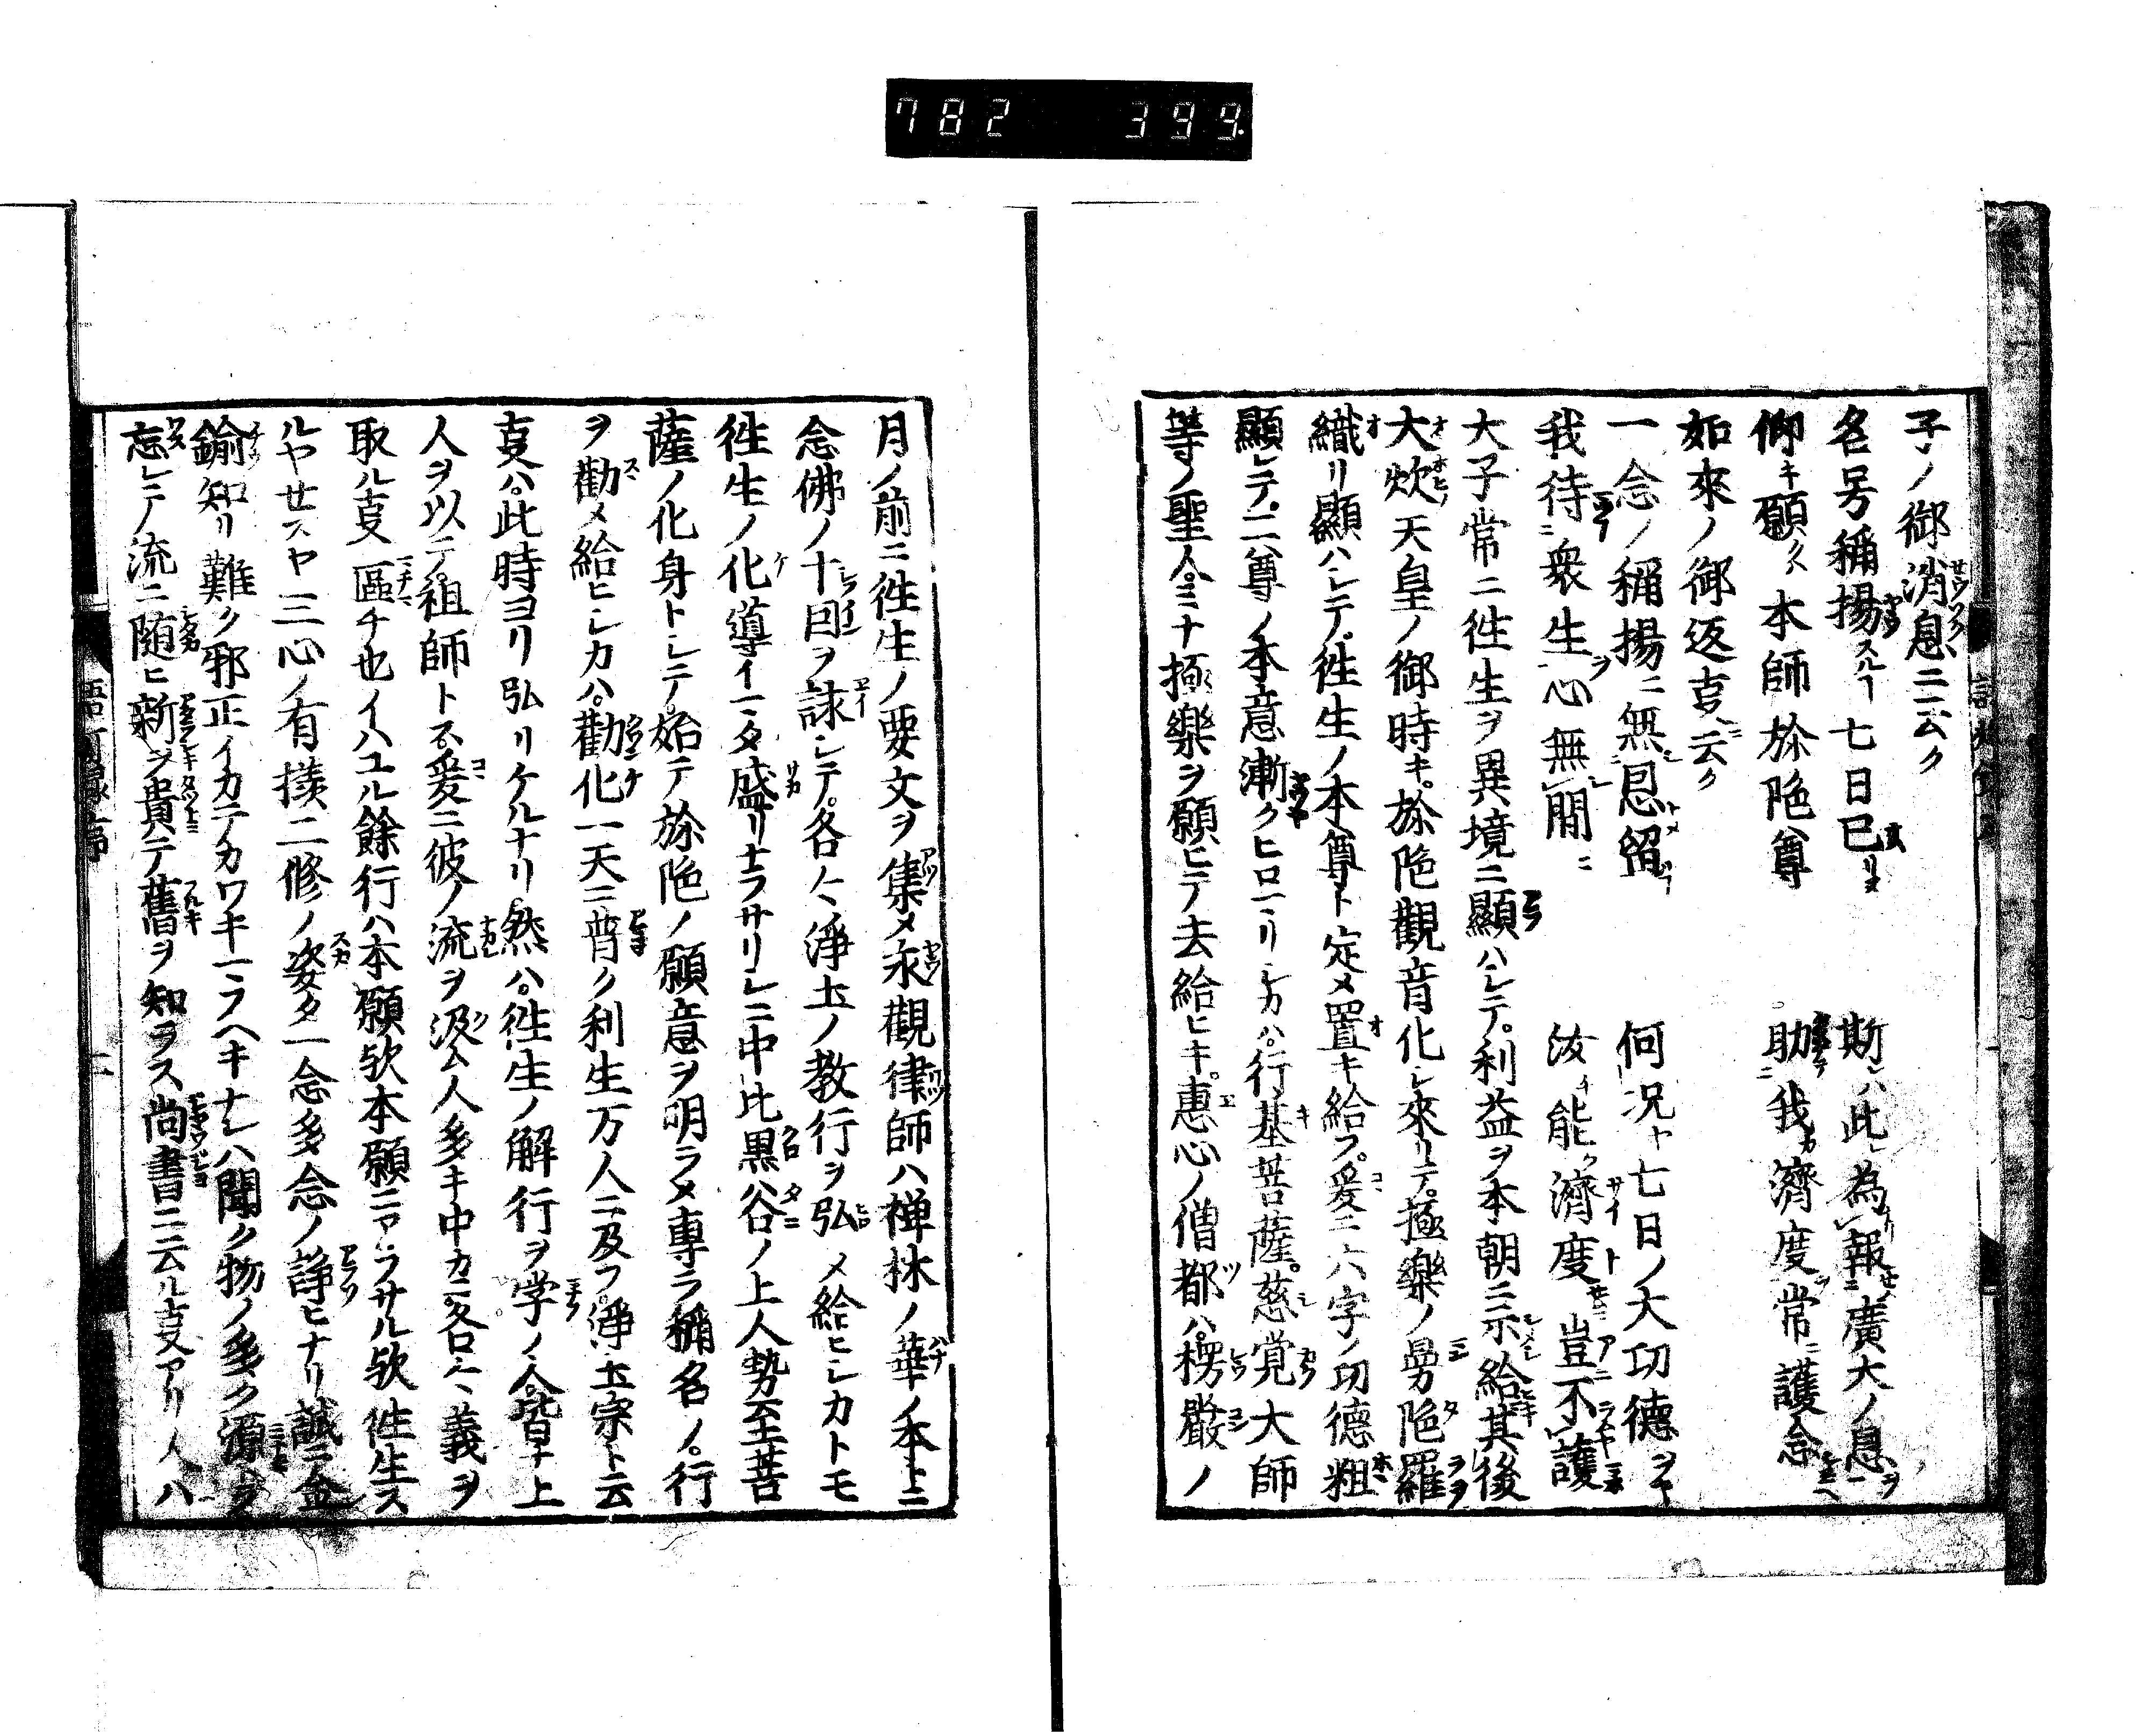 782 399.
子ノ御消息ニ云ク
名号稱揚スルヿ七日已リヌ 斯ハ此為報廣大ノ恩ヲ
仰キ願クハ本師㫆陁尊 助我カ濟度常ニ護念
如來ノ御返㕝ニ云ク
一念ノ稱揚ニ無恩留 何况ヤ七日ノ大功德ヲヤ
我待衆生ヲ心無間ニ 汝チ能ク濟度豈不護
大子常ニ徃生ヲ異境ニ顯ハレテ利益ヲ本朝ニ示給其後
大炊天皇ノ御時キ㫆陁觀音化レ來リテ極樂ノ曼陁羅
織リ顯ハシテ徃生ノ本尊ト定メ置キ給フ爰ニ六字ノ功德粗
顯シテ二尊ノ本意漸クヒロマリシカハ行基菩薩慈覚大師
等ノ聖人ミナ極樂ヲ願ヒテ去給ヒキ惠心ノ僧都ハ楞嚴ノ
月ノ前ニ徃生ノ要文ヲ集メ永觀律師ハ禅林ノ華ノ本トニ
念佛ノ十因ヲ詠シテ各々淨土ノ教行ヲ弘メ給ヒシカトモ
徃生ノ化導イマタ盛リナラサリシニ中比黒谷ノ上人勢至菩
薩ノ化身トシテ始テ㫆陁ノ願意ヲ明ラメ專ラ稱名ノ行
ヲ勸メ給ヒシカハ勸化一天ニ普ク利生万人ニ及フ淨土宗ト云
㕝ハ此時ヨリ弘リケルナリ然ハ徃生ノ解行ヲ学ノ人皆ナ上
人ヲ以テ祖師トス爰ニ彼ノ流ヲ汲ム人多キ中カニ各々義ヲ
取ル㕝區チ也イハユル餘行ハ本願欤本願ニアラサル欤徃生ス
ルヤセスヤ三心ノ有樣二修ノ姿タ一念多念ノ諍ヒナリ誠ニ金
鍮知リ難ク邪正イカテカワキマフヘキナレハ聞ク物ノ多ク源ヲ
忘レテ流ニ随ヒ新ヲ貴テ舊ヲ知ラス尚書ニ云ル㕝アリ人ハ